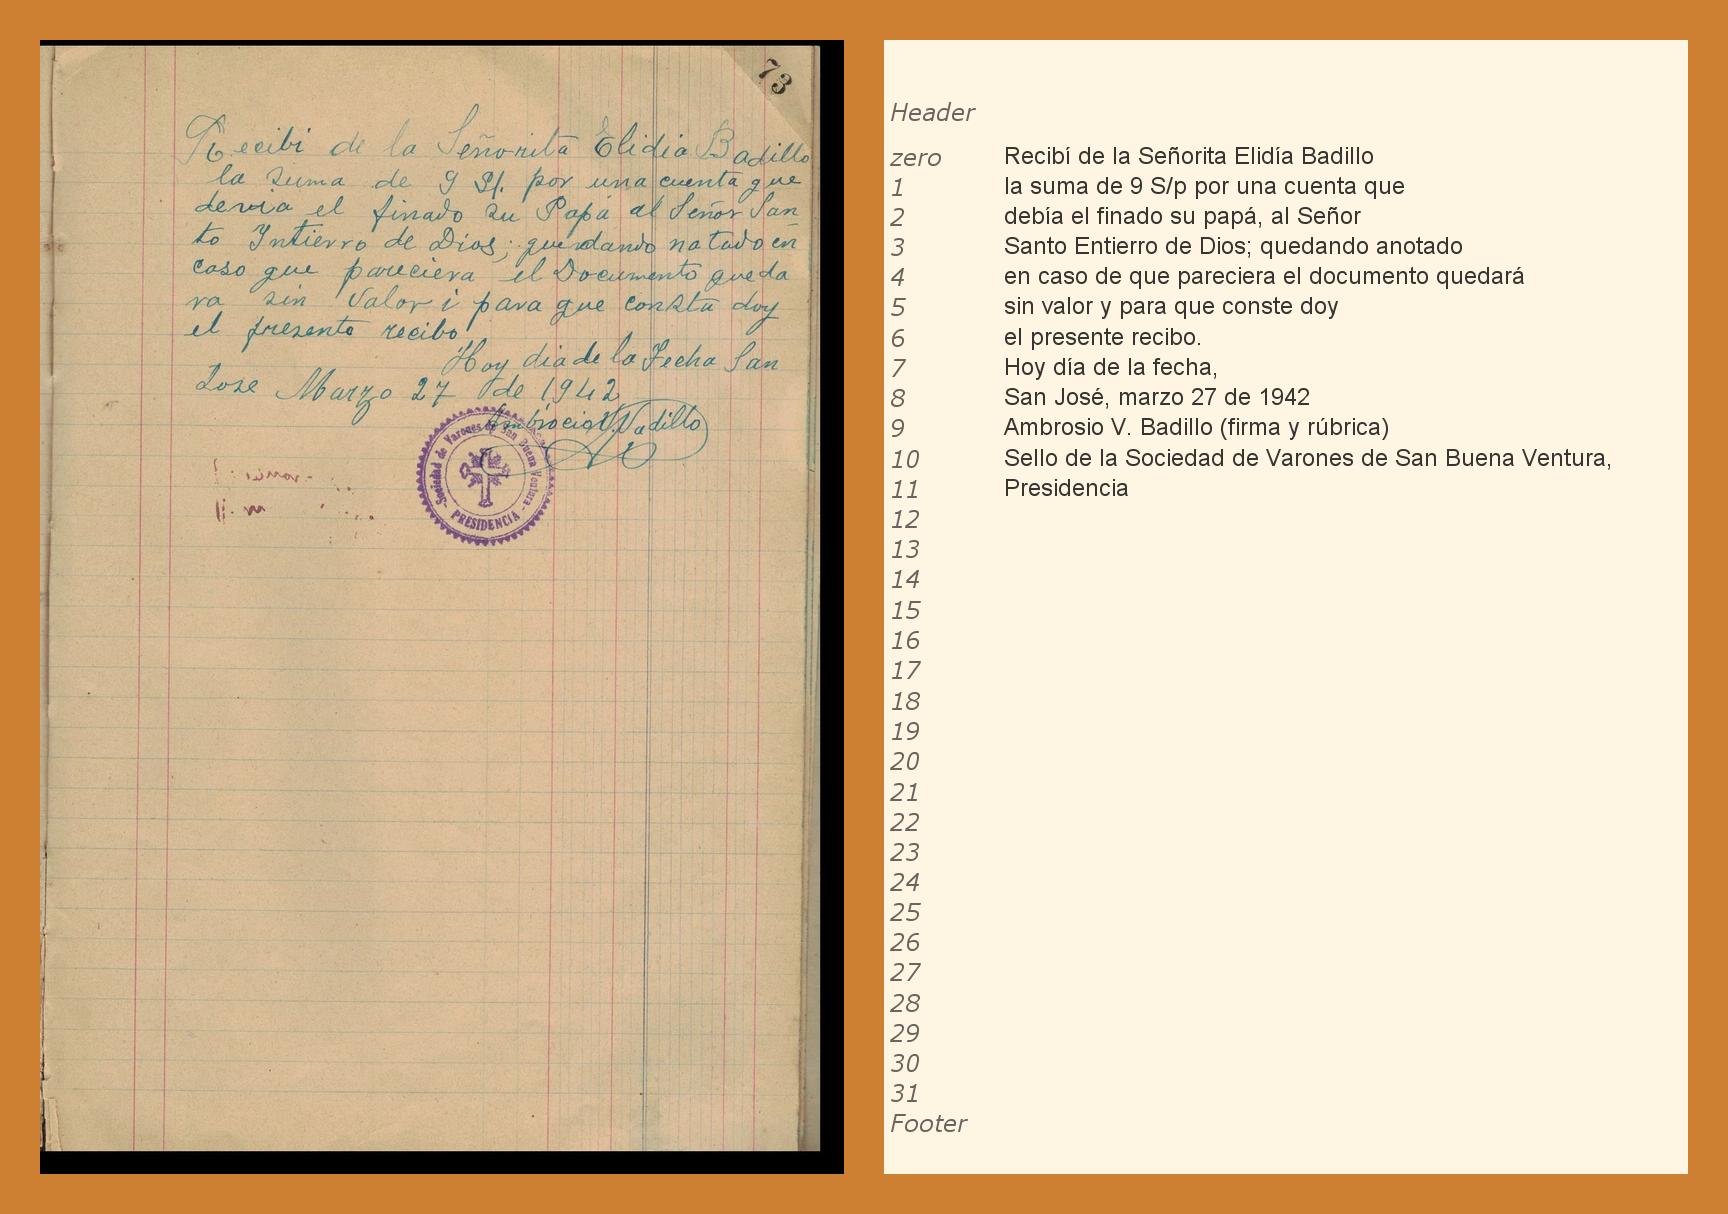 73
Recibi de la Señorita Elidia Badillo
la suma de 9 S/. por una cuenta que
devia el finado su Papá al Señor San
to Intierro de Dios; quendando notado en
caso que pareciera el Documento queda
ra sin Valor i para que consta doy
el presente recibo
Hoy dia de la Fecha San
Jose Marzo 27 de 1942
Ambrocio V. Vadillo
Sociedad de Varones de San Buena Ventura
- PRESIDENCIA -
Header
zero Recibí de la Señorita Elidía Badillo
1 la suma de 9 S/p por una cuenta que
2 debía el finado su papá, al Señor
3 Santo Entierro de Dios; quedando anotado
4 en caso de que pareciera el documento quedará
5 sin valor y para que conste doy
6 el presente recibo.
7 Hoy día de la fecha,
8 San José, marzo 27 de 1942
9 Ambrosio V. Badillo (firma y rúbrica)
10 Sello de la Sociedad de Varones de San Buena Ventura,
11 Presidencia
12
13
14
15
16
17
18
19
20
21
22
23
24
25
26
27
28
29
30
31
Footer